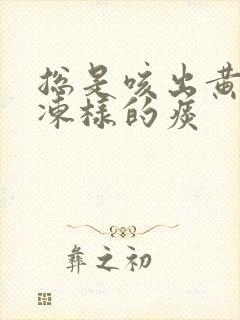 总是咳出黄
冻样的痰
彝之初